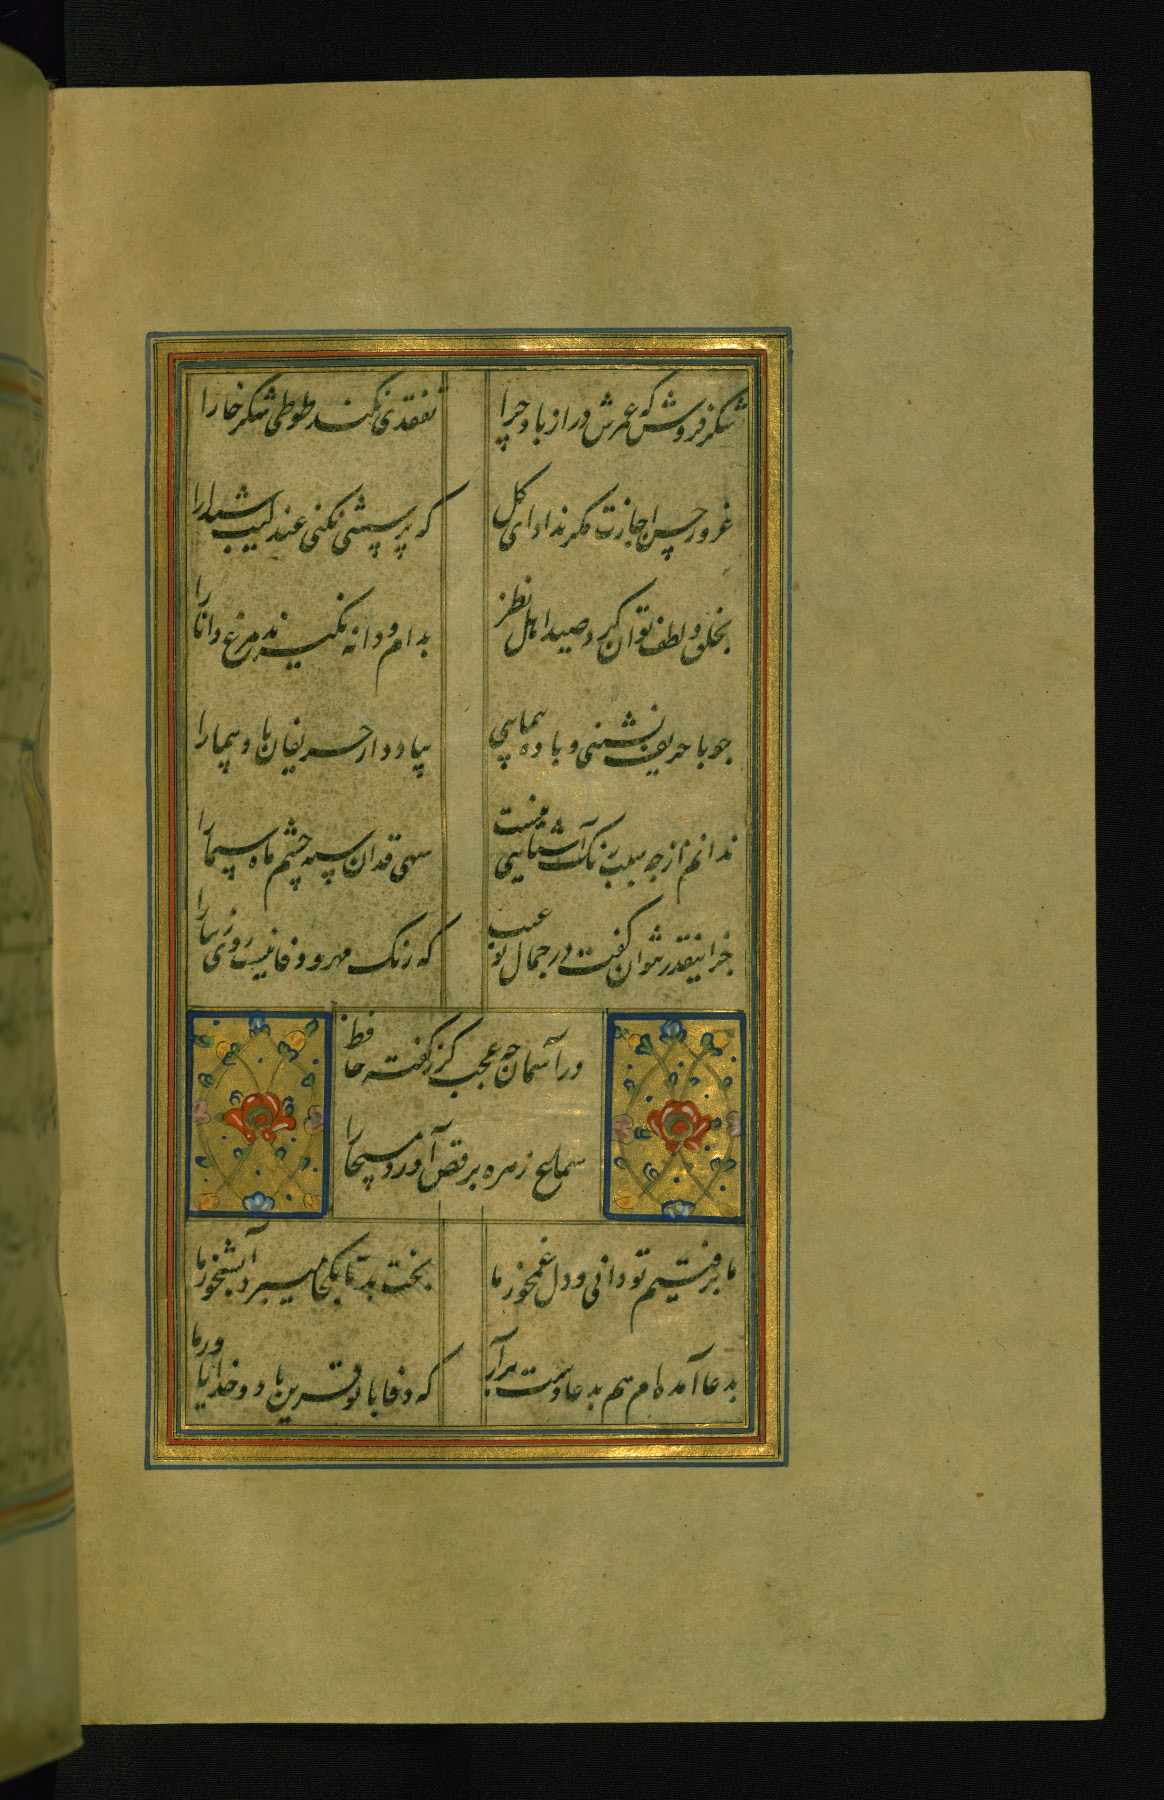 شکر فروش که عمرش دراز باد چرا
تفقدی نکند طوطی شکرخا را
غرور حسن اجازت مگر نداد ای گل
که پرسشی نکنی عندلیب شیدا را
بخلق و لطف توان کرد صید اهل نظر
بدام و دانه نگیرند مرغ دانا را
چو با حریف نشینی و باده پیمایی
بیاد دار حریفان باد پیما را
ندانم از چه سبب رنگ آشنایی نیست
سهی قدان سیه چشم ماه سیما را
جز اینقدر نتوان گفت در جمال تو عیب
که رنگ مهر و وفا نیست روی زیبا را
در آسمان چه عجب گر ز گفته حافظ
سماع زهره برقص آورد مسیحا را
ما برفتیم تو دانی و دل غمخور ما
بخت بد تا بکجا میبرد آبشخور ما
بدعا آمده ام هم بدعا دست برآر
که وفا با تو قرین باد و خدا یاور ما